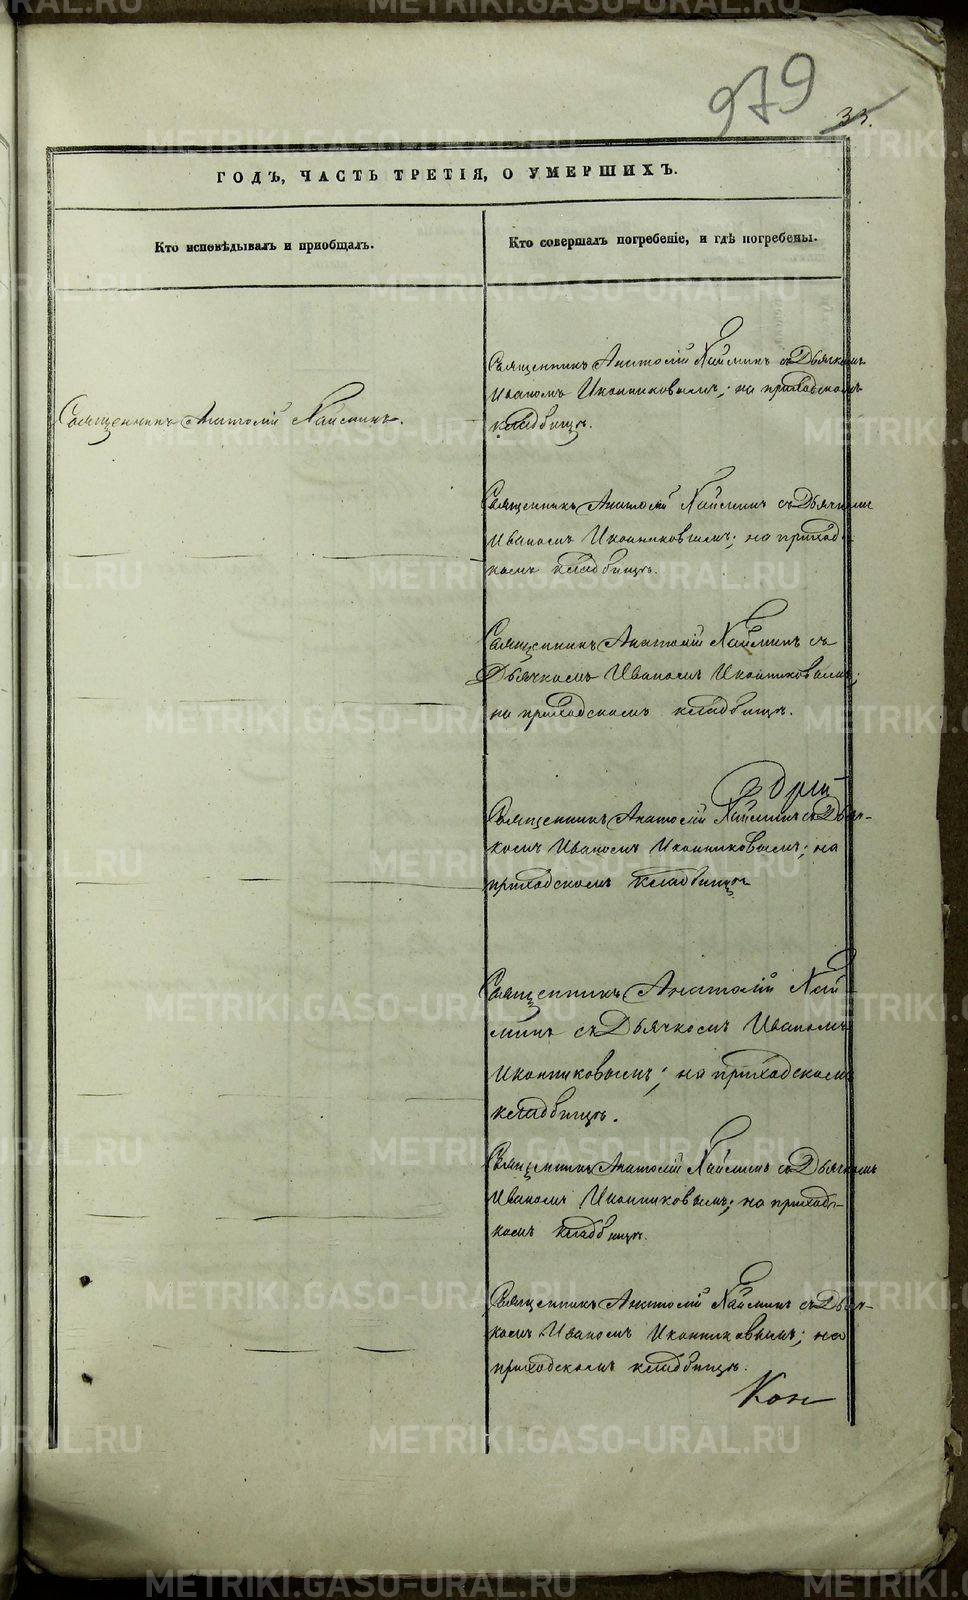 979
33.
ГОДЪ, ЧАСТЬ ТРЕТІЯ, О УМЕРШИХЪ.
Кто исповѣдывалъ и приобщалъ.
Кто совершалъ погребеніе, и гдѣ погребены.
Священникъ Анатолій Наймин.
Священникъ Анатолій съ Дьячкомъ
Иваномъ Иконниковымъ; на приходскомъ
кладбищѣ.
Священникъ Анатолій съ Дьячкомъ
Иваномъ Иконниковымъ; на приход-
комъ кладбищѣ.
Священникъ Анатолій съ
Дьячкомъ Иваномъ Иконниковымъ;
на приходскомъ кладбищѣ.
Священникъ Анатолій съ Дьяч-
комъ Иваномъ Иконниковымъ; на
приходскомъ кладбищѣ
Священникъ Анатолій
съ Дьячкомъ Иваномъ
Иконниковымъ; на приходскомъ
кладбищѣ.
Священникъ Анатолій съ Дьячкомъ
Иваномъ Иконниковымъ; на приход-
комъ кладбищѣ.
Священникъ Анатолій съ Дьяч-
комъ Иваномъ Иконниковымъ; на
приходскомъ кладбищѣ.
METRIKI.GASO-URAL.RU